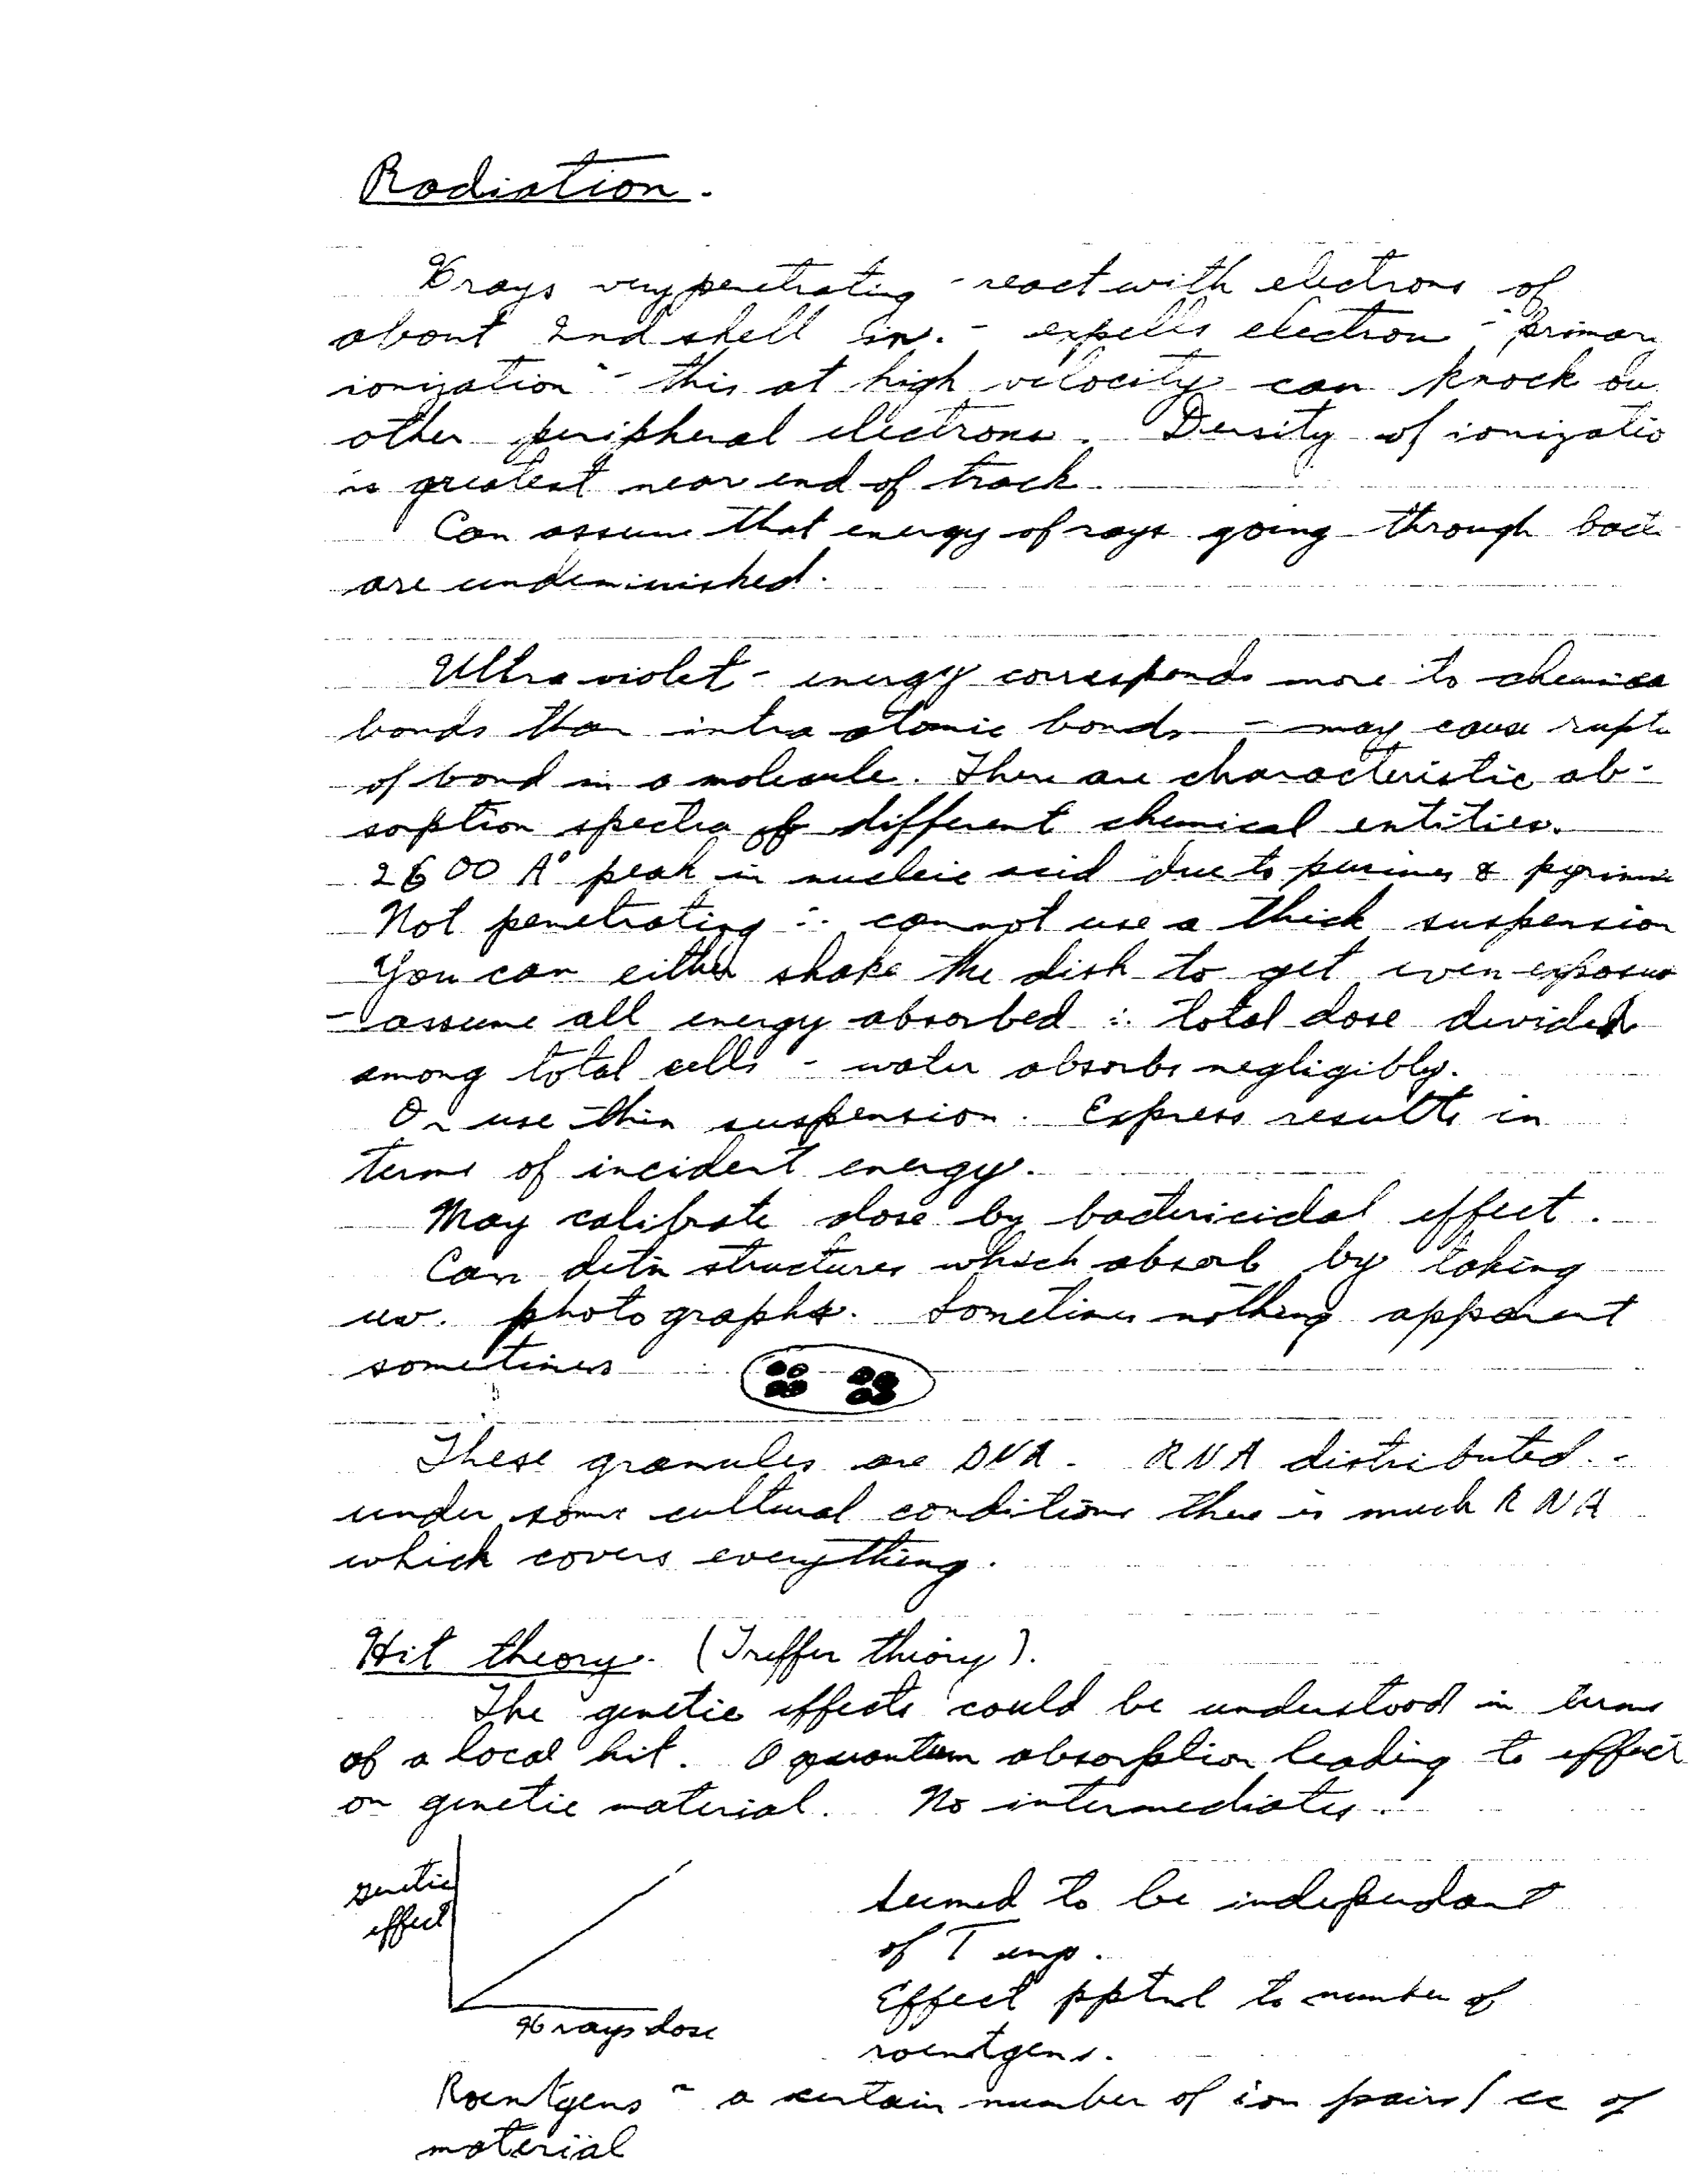 Radiation.
X rays very penetrating - react with electrons of
about 2nd shell in. - expells electron - "primary
ionization" - this at high velocity can knock ou
other peripheral electrons. Density of ionizatio
is greatest near end of track.
Can assume that energy of rays going through bact
are undiminished.
Ultra violet - energy corresponds more to chemica
bonds than intra atomic bonds - may cause ruptu
of bond in a molecule. There are characteristic ab-
sorption spectra of different chemical entities.
2600 A° peak in nucleic acid due to purines & pyrimi
Not penetrating ∴ cannot use a thick suspension
You can either shake the dish to get even exposur
- assume all energy absorbed ∴ total dose devided
among total cells - water absorbs negligibly.
Or use thin suspension. Express results in
terms of incident energy.
May calibrate dose by bactericidal effect.
Can detn structures which absorb by taking
uv. photographs. Sometimes nothing apparent
sometimes
These granules are DNA - RNA distributed. -
under some cultural conditions there is much RNA
which covers everything.
Hit theory. (Treffer theory).
The genetic effects could be understood in terms
of a local hit. A quantum absorption leading to effect
on genetic material. No intermediates.
genetic
effect
X rays dose
Seemed to be independant
of Temp.
Effect pptnl to number of
roentgens.
Roentgens - a certain number of ion pairs / cc of
material